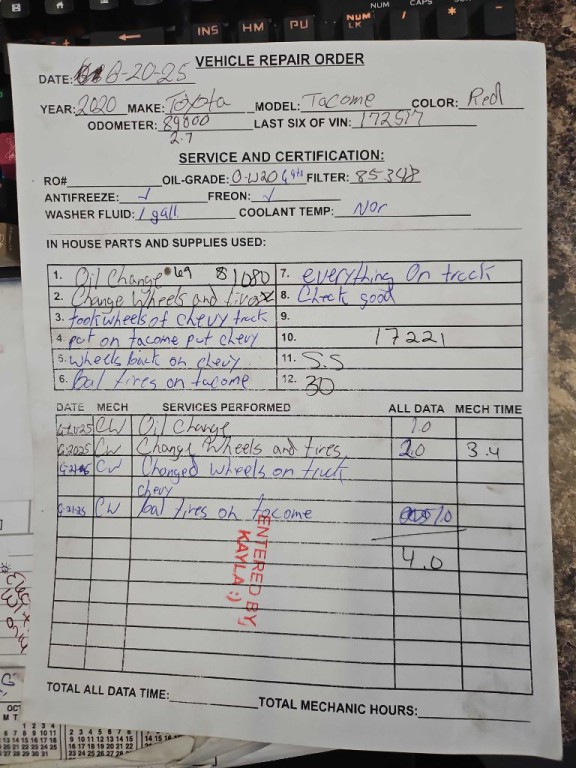 NUM CAPS
INS HM PU NUM LK / * -
VEHICLE REPAIR ORDER
DATE: 6-20-25
YEAR: 2020 MAKE: Toyota MODEL: Tacome COLOR: Red
ODOMETER: 89000 LAST SIX OF VIN: 172517
2.7
SERVICE AND CERTIFICATION:
RO# OIL-GRADE: 0-W20 6qts FILTER: 85348
ANTIFREEZE: ✓ FREON: ✓
WASHER FLUID: 1 gall COOLANT TEMP: Nor
IN HOUSE PARTS AND SUPPLIES USED:
1. Oil Change 69 81080 7. everything On truck
2. Change Wheels and tires 8. Check good
3. took wheels of chevy truck 9.
4. put on tacome put chevy 10. 17221
5. wheels back on chevy 11. S.S
6. bal tires on tacome 12. 30
DATE MECH SERVICES PERFORMED ALL DATA MECH TIME
CW Oil Change 1.0
6-20-25 CW Change Wheels and tires 2.0 3.4
CW Changed wheels on truck
chevy
6-21-25 CW bal tires on tacome 1.0
4.0
ENTERED BY
KAYLA :)
TOTAL ALL DATA TIME: TOTAL MECHANIC HOURS: